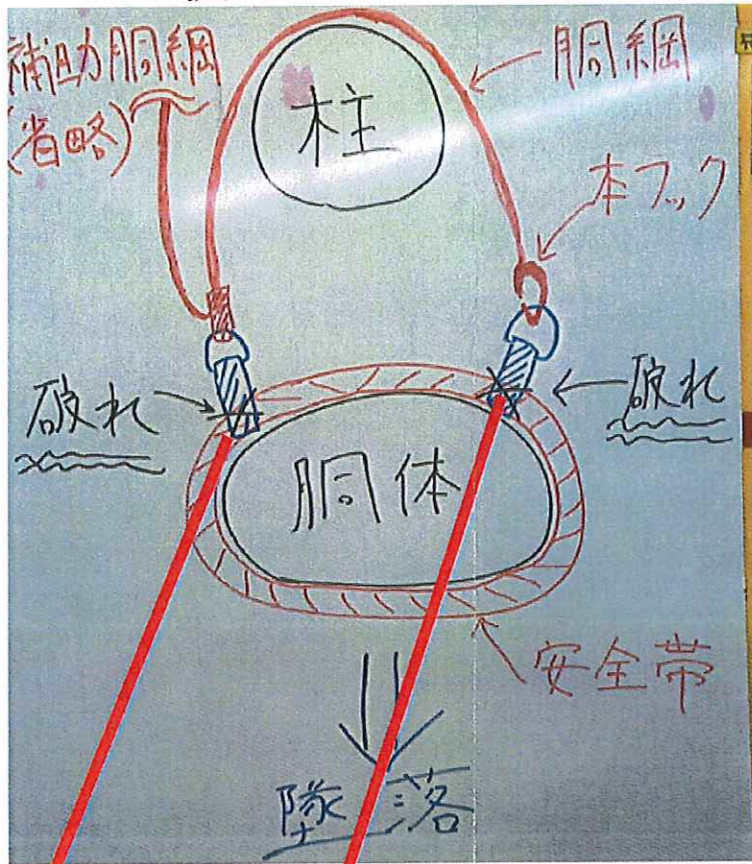 補助胴綱
(省略)
胴綱
柱
本フック
破れ
破れ
胴体
安全帯
墜落